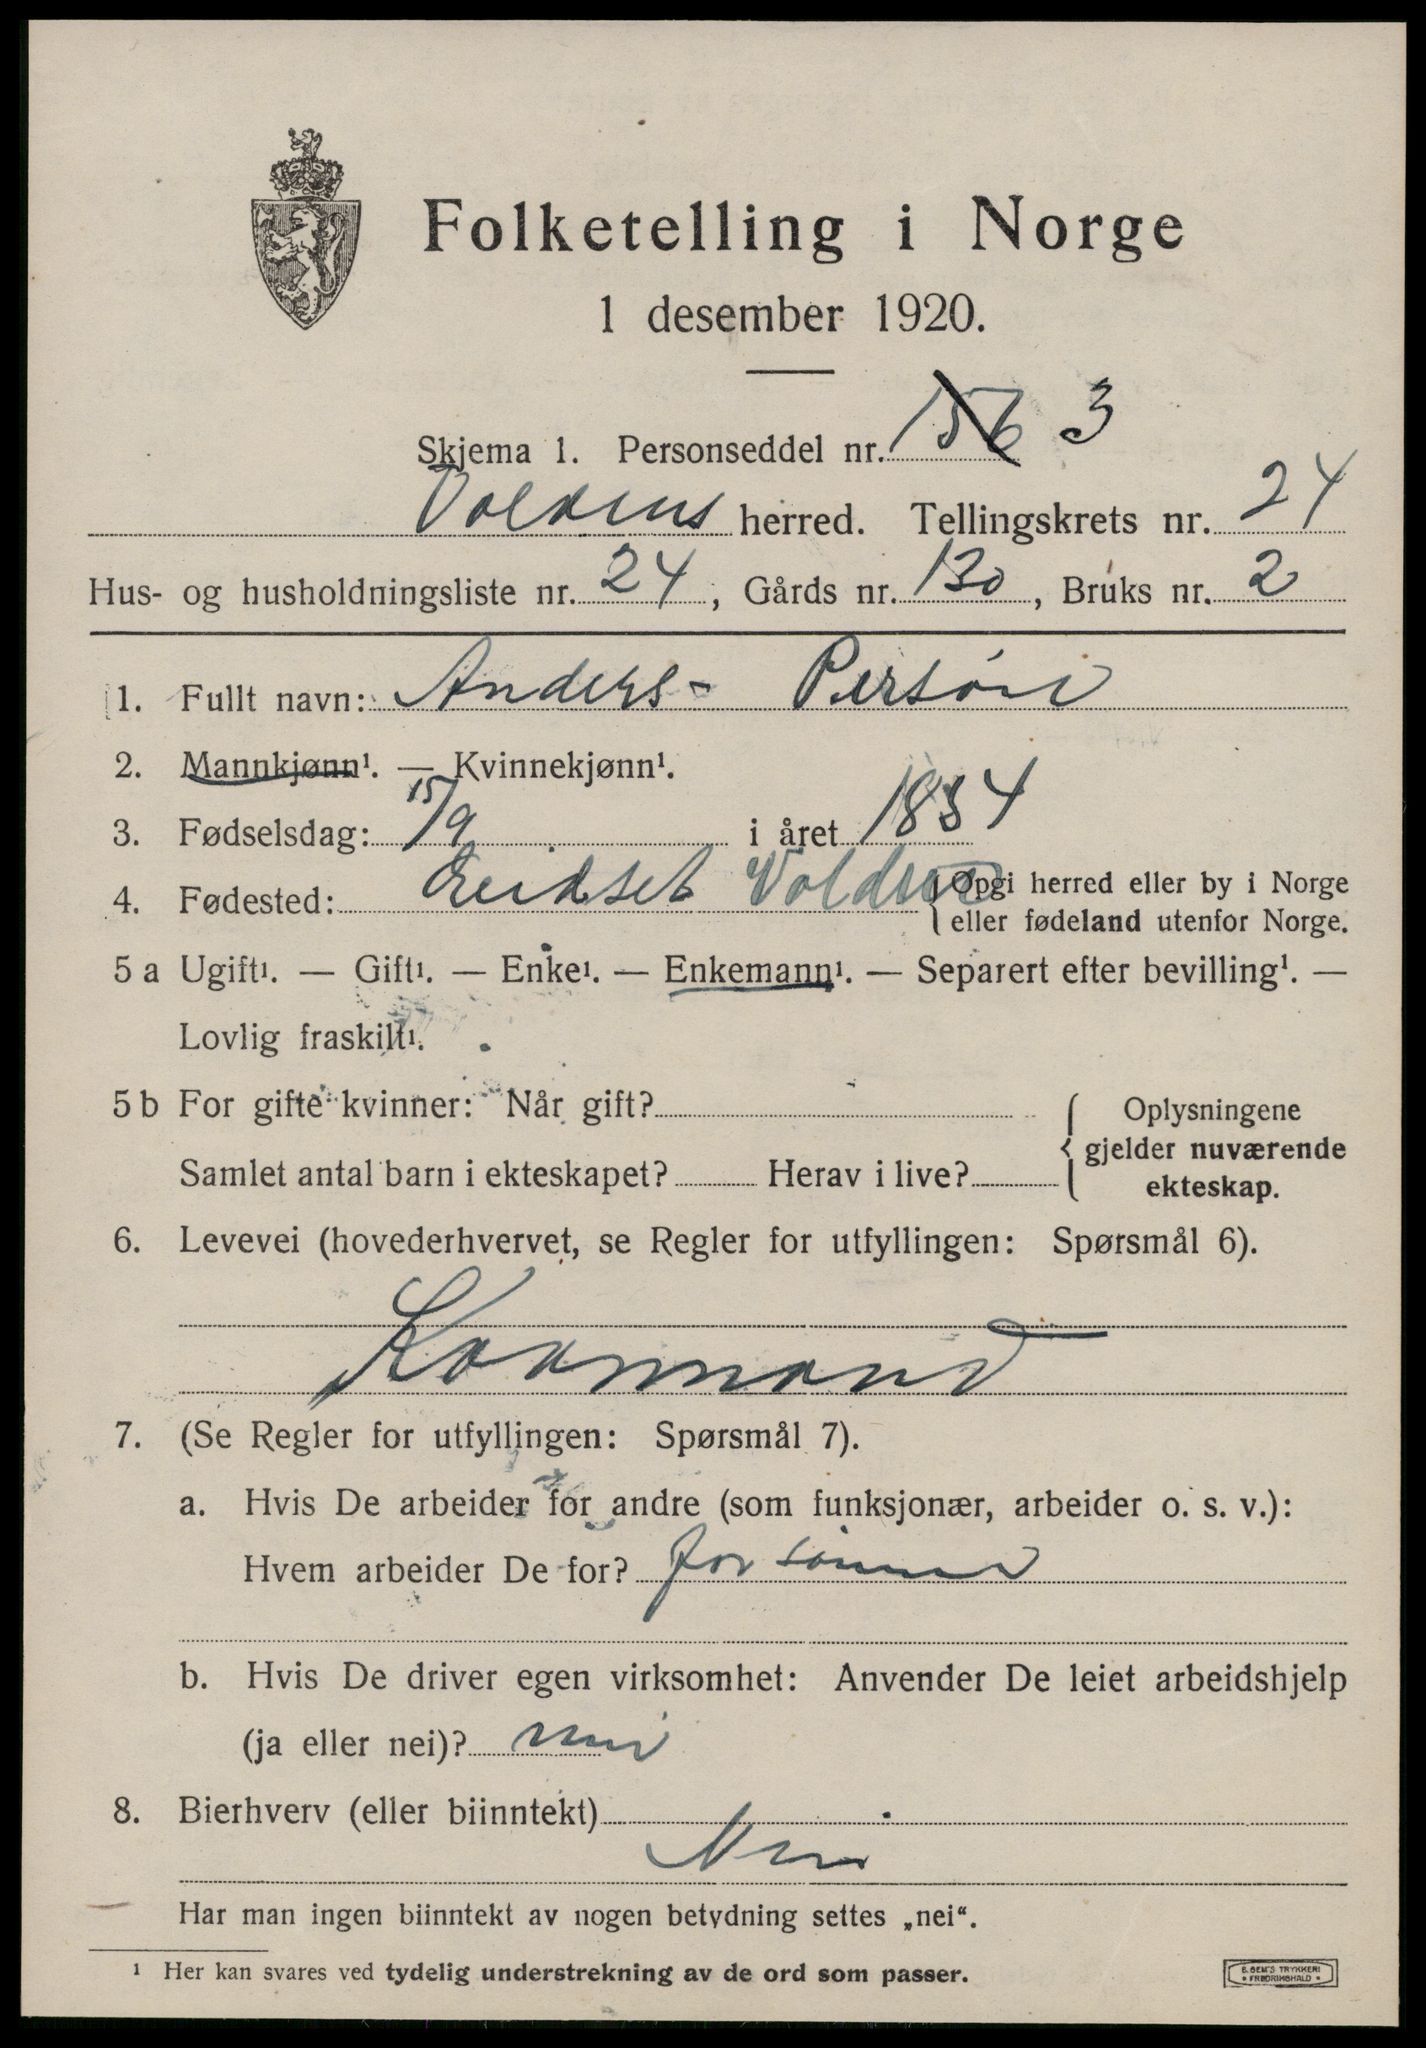 Folketelling i Norge
1 desember 1920.
Skjema 1. Personseddel nr. 156 3
Voldens herred. Tellingskrets nr. 24
Hus- og husholdningsliste nr. 24, Gårds nr. 130, Bruks nr. 2
1. Fullt navn: Anders- Persøn
2. Mannkjønn¹. — Kvinnekjønn¹.
3. Fødselsdag: 15/9 i året 1834
4. Fødested: Eidset Volden { Opgi herred eller by i Norge
eller fødeland utenfor Norge.
5 a Ugift¹. — Gift¹. — Enke¹. — Enkemann¹. — Separert efter bevilling¹. —
Lovlig fraskilt¹.
5 b For gifte kvinner: Når gift?
Samlet antal barn i ekteskapet? Herav i live?
Oplysningene
gjelder nuværende
ekteskap.
6. Levevei (hovederhvervet, se Regler for utfyllingen: Spørsmål 6).
Kaarmand
7. (Se Regler for utfyllingen: Spørsmål 7).
a. Hvis De arbeider for andre (som funksjonær, arbeider o. s. v.):
Hvem arbeider De for? for
b. Hvis De driver egen virksomhet: Anvender De leiet arbeidshjelp
(ja eller nei)? nei
8. Bierhverv (eller biinntekt)
Nei
Har man ingen biinntekt av nogen betydning settes „nei“.
¹ Her kan svares ved tydelig understrekning av de ord som passer.
E. SEM'S TRYKKERI
FREDRIKSHALD